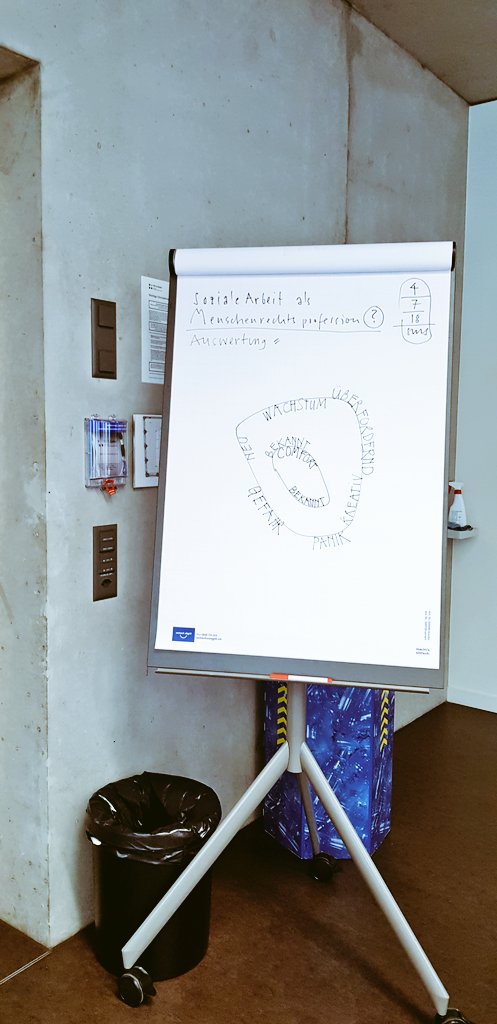 Soziale Arbeit als
Menschenrechtsprofession ?
Auswertung =
4
7
18
WACHSTUM
ÜBERFORDERND
KREATIV
PANIK
GEFAHR
NEU
BEKANNT
COMFORT
BEKANNT